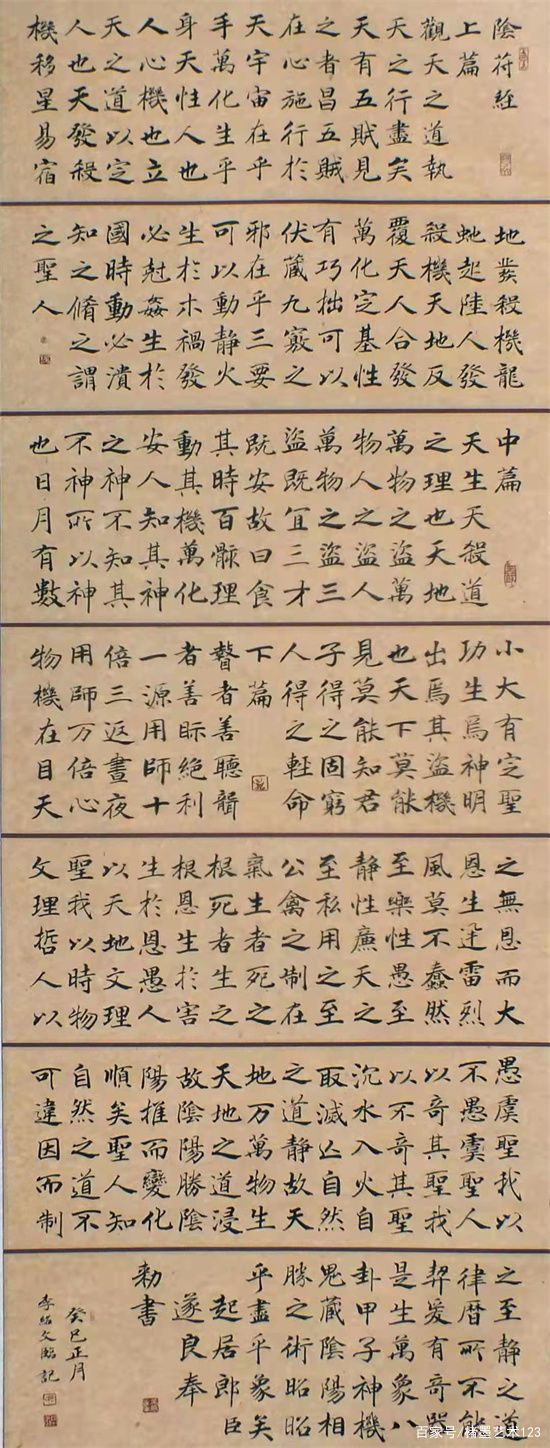 陰符經
上篇
觀天之道執
天之行盡矣
天有五賊見
之者昌五賊
在心施行於
天宇宙在乎
手萬化生乎
身天性人也
人心機也立
天之道以定
人也天發殺
機移星易宿
地發殺機龍
虵起陸人發
殺機天地反
覆天人合發
萬化定基性
有巧拙可以
伏藏九竅之
邪在乎三要
可以動靜火
生於木禍發
必尅姦生於
國時動必潰
知之脩之謂
之聖人
中篇
天生天殺道
之理也天地
萬物之盜萬
物人之盜人
萬物之盜三
盜既宜三才
既安故曰食
其時百骸理
動其機萬化
安人知其神
之神不知其
不神所以神
也日月有數
小大有定聖
功生焉神明
出焉其盜機
也天下莫能
見莫能知君
子得之固窮
人得之輕命
下篇
瞽者善聽聾
者善眎絕利
一源用師十
倍三返晝夜
用師万倍心
物機在目天
之無恩而大
恩生迅雷烈
風莫不蠢然
至樂性愚至
靜性廉天之
至私用之至
公禽之制在
氣生者死之
根死者生之
根恩生於害
生於恩愚人
以天地文理
聖我以時物
文理哲人以
愚虞聖我以
不愚虞聖人
以奇其聖我
以不奇其聖
沉水入火自
取滅亡自然
之道靜故天
地万萬物生
天地之道浸
故陰陽勝陰
陽推而變化
順矣聖人知
自然之道不
可違因而制
之至靜之道
律曆所不能
契爰有奇器
是生萬象八
卦甲子神機
鬼藏陰陽相
勝之術昭昭
乎盡乎象矣
起居郎臣
遂良奉
勅書
癸巳正月
李紹文臨記
百家号/精墨艺术123